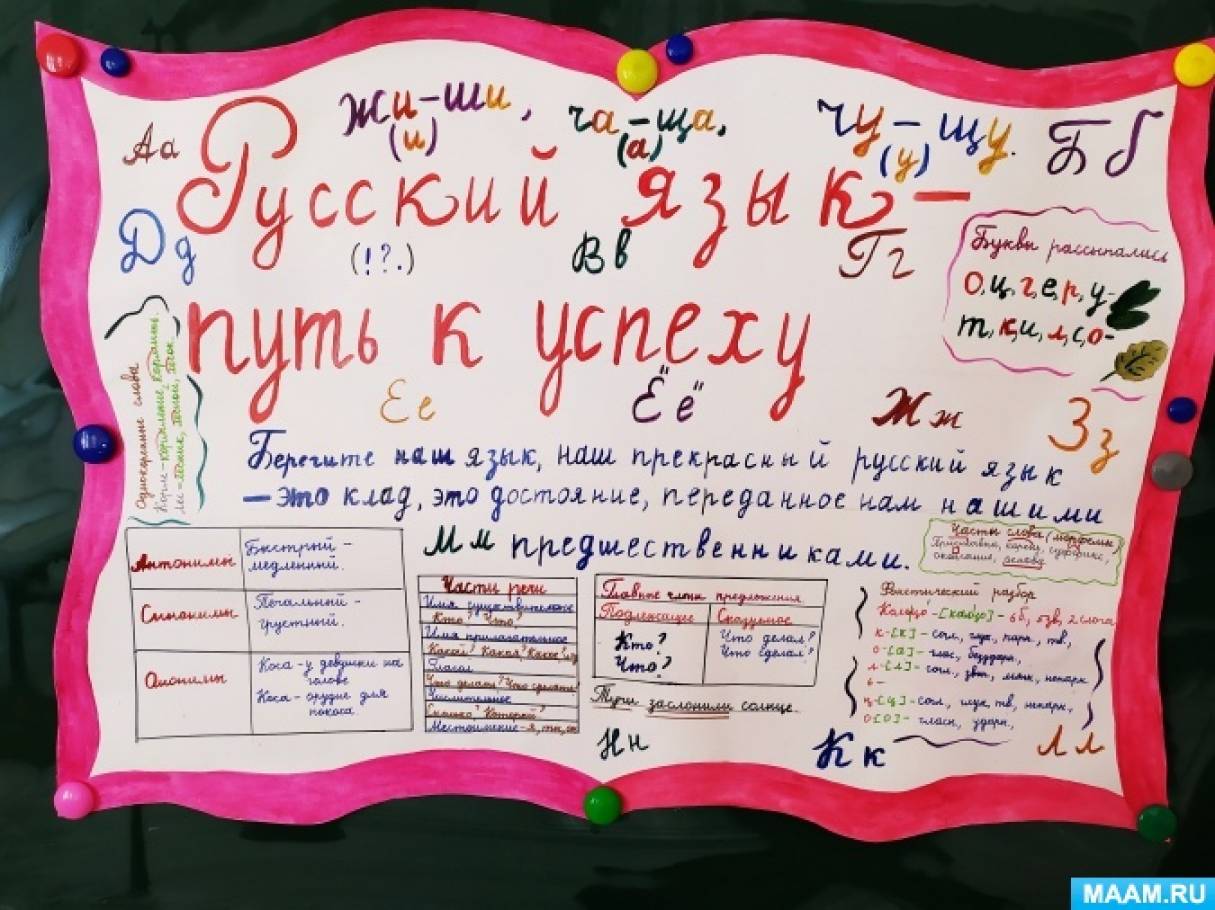 жи-ши, ча-ща, чу-щу.
(и) (а) (у)
Аа
Бб
Русский язык -
Дд
(!?.)
Вв
Гг
Буквы рассыпались
О, ц, г, е, р, у-
т, к, и, л, с, о-
путь к успеху
Ее
Ёё
Жж
Зз
Однокоренные слова
Корм - кормление, кормить.
Лес - лесник, лесной, лесок.
Берегите наш язык, наш прекрасный русский язык
- это клад, это достояние, переданное нам нашими
Мм предшественниками.
Части слова (морфемы)
Приставка, корень, суффикс,
окончание, основа.
Антонимы
Быстрый -
медленный.
Синонимы
Печальный -
грустный.
Омонимы
Коса - у девушки на
голове
Коса - орудие для
покоса.
Части речи
Имя существительное
Кто? Что?
Имя прилагательное
Какой? Какая? Какое?
Глагол
Что делать? Что сделать
Числительное
Сколько? Который?
Местоимение - я, ты, он
Главные члены предложения
Подлежащее
Сказуемое
Кто?
Что?
Что делал?
Что сделал?
Тучи заслонили солнце.
Фонетический разбор
Кольцо - 6б, 5зв, 2 слога
к - [к] - согл., глух, парн, тв,
о - [а] - глас, безударн,
л - [л'] - согл, звн, мягк, непарн
ь -
ц - [ц] - согл, глух, тв, непарн,
о [о] - гласн, ударн,
Нн
Кк
Лл
MAAM.RU